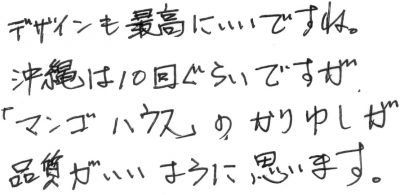 デザインも最高にいいですね。
沖縄は10回ぐらいですが
「マンゴハウス」のかりゆしが
品質がいいように思います。